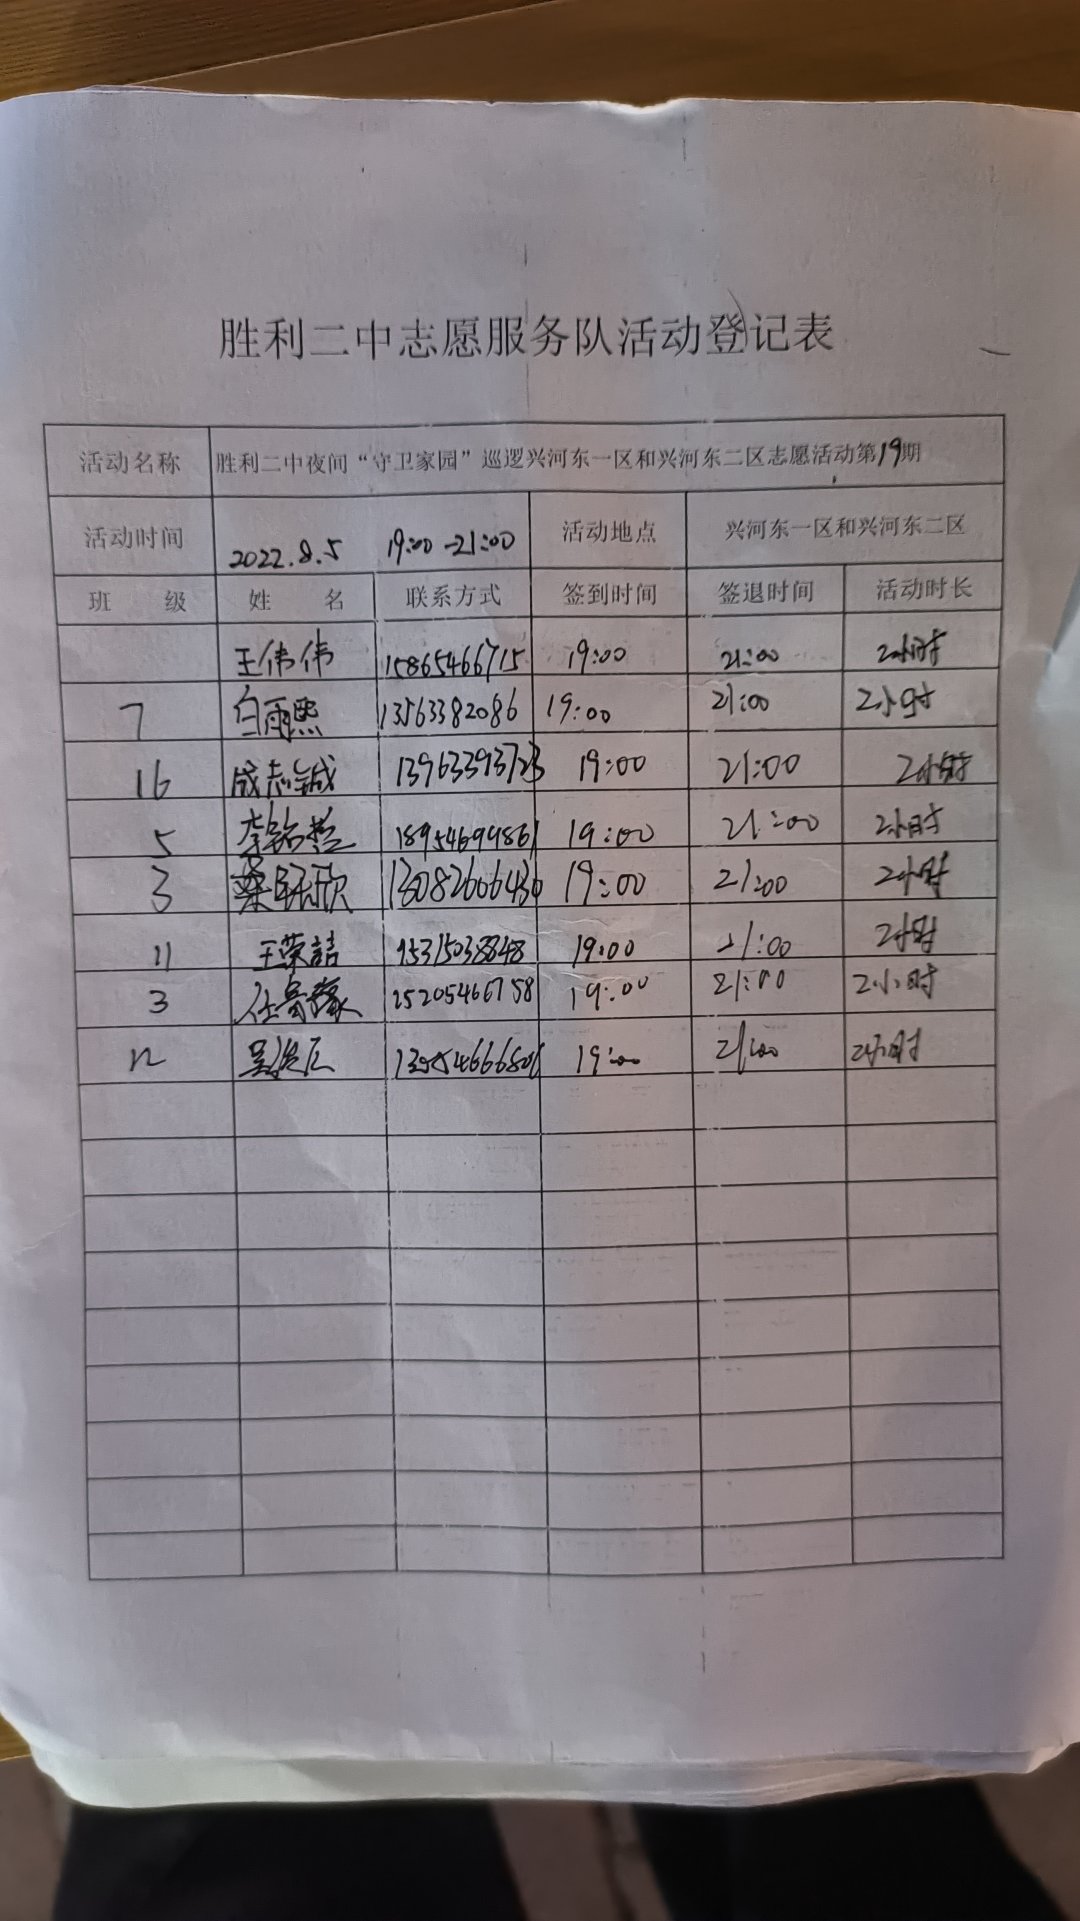 胜利二中志愿服务队活动登记表
活动名称 胜利二中夜间“守卫家园”巡逻兴河东一区和兴河东二区志愿活动第19期
活动时间 2022.8.5 19:00-21:00 活动地点 兴河东一区和兴河东二区
班 级 姓 名 联系方式 签到时间 签退时间 活动时长
王伟伟 15865466715 19:00 21:00 2小时
7 白雨熙 13563382086 19:00 21:00 2小时
16 成志诚 13963393723 19:00 21:00 2小时
5 李铭 18954699861 19:00 21:00 2小时
3 欣 13082606430 19:00 21:00 2小时
11 王荣喆 15315038848 19:00 21:00 2小时
3 任 15205466758 19:00 21:00 2小时
12 吴 19:00 21:00 2小时